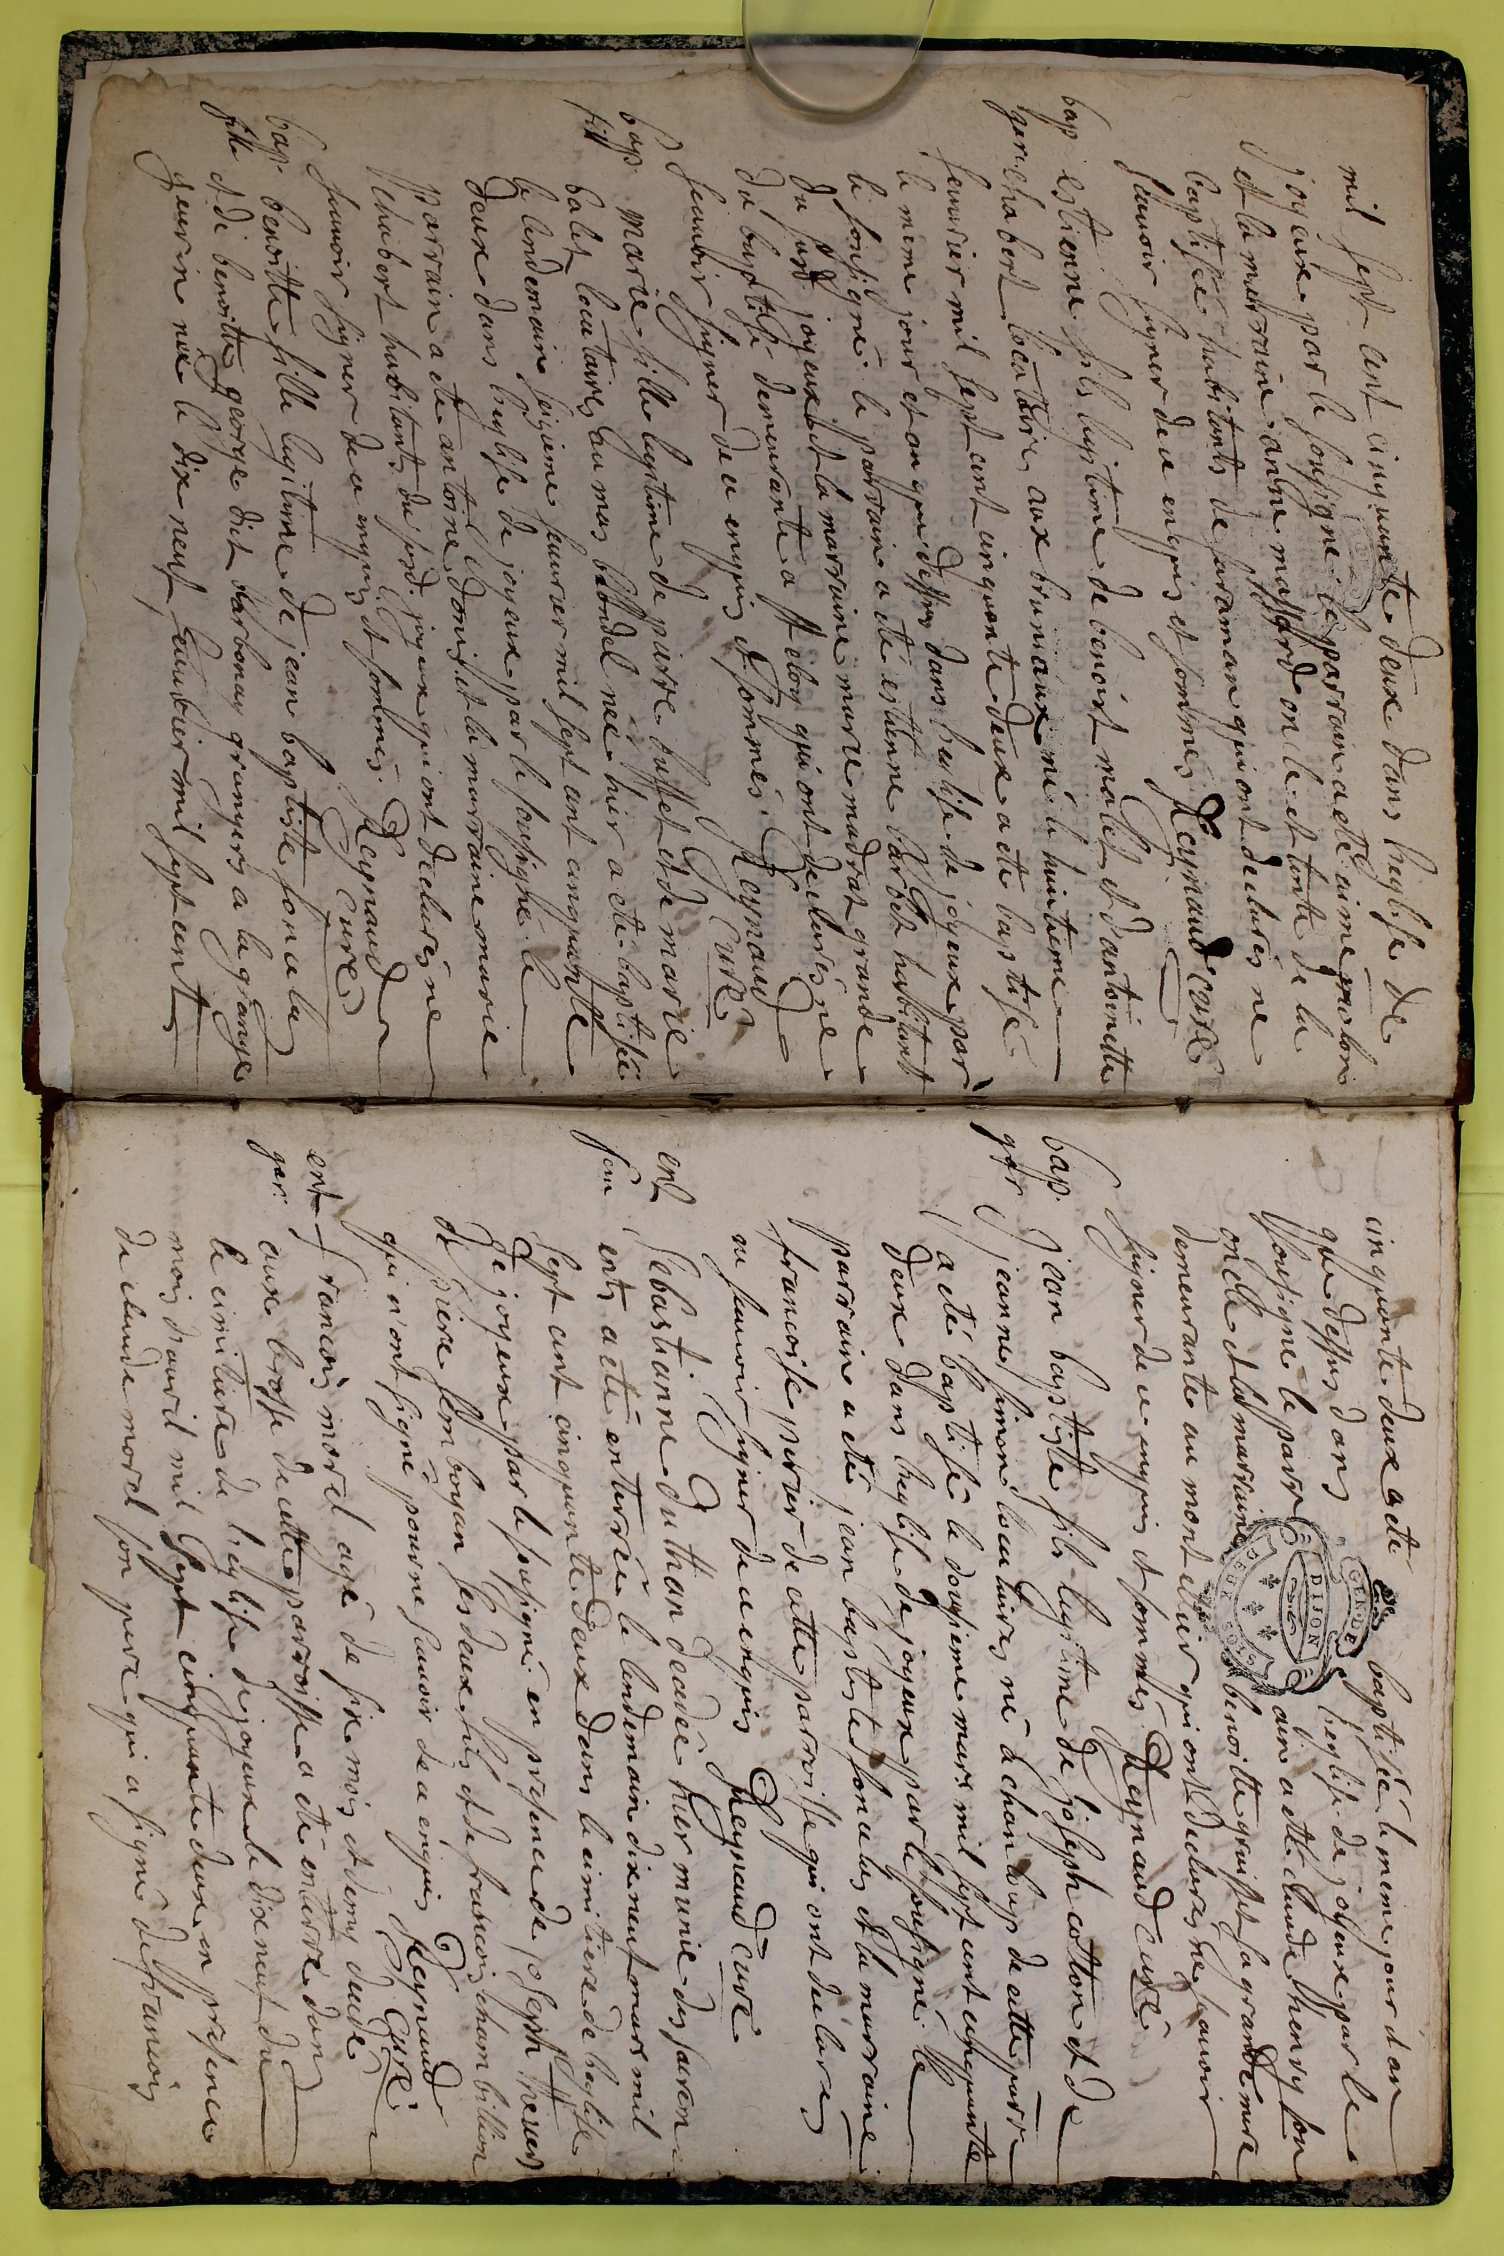 mil sept cent cinquante deux dans lieglise de
joyeux par le soussigné le parrain a eté aimé molon
et la marraine anne massard oncle et tante de la
baptisée habitants de faraman qui ont declarés ne
scauoir signer de ce enquis et sommés Reynaud curé
bap estienne fils legitime de benoist malet et d'antoinette
gar chabert locataires aux brumaux né le huitieme
feurier mil sept cent cinquante deux a eté baptisé
le meme jour et an que dessus dans lieglise de joyeux par
le soussigné le parrain a eté estienne barbet habitant
du sud joyeux et la marraine marie madrat grande
du baptisé demeurante a st eloy qui ont declarés ne
scauoir signer de ce enquis et sommés. Reynaud
Curé
bap. marie fille legitime de pierre buffet et de marie
fill balet locataires au mas blondel née hier a eté baptisée
le lendemain seizieme feurier mil sept cent cinquante
deux dans lieglise de joyeux par le soussigné le
parrain a eté antoine donis et la marraine marie
chabert habitants du sud. joyeux qui ont declarés ne
scauoir signer de ce enquis et sommés. Reynaud
Curé
bap. benoitte fille legitime de jean baptiste
fille et de benoitte george dit charbonay grangers a la grange
née le dix neuf feurier mil sept cent
cinquante deux a eté baptisée le meme jour et an
que dessus dans lieglise de joyeux par le
soussigné le parrain a eté claude thenry son
oncle et la marraine benoitte sa grandemere
demeurante au montellier qui ont declarés ne scauoir
signer de ce enquis et sommés Reynaud Curé
GEN. DE
DIJON
bap. jean baptiste fils legitime de joseph cotton et de
gar jeanne simon locataires né a chanloup de cette parr
a eté baptisé le douzieme mars mil sept cent cinquante
deux dans lieglise de joyeux par le soussigné le
parrain a eté jean baptiste et la marraine
francoise perier de cette parroisse qui ont declarés
ne scauoir signer de ce enquis Reynaud Curé
ent Sebastienne duthan decedée hier munie des sacrem
fem ents a eté enterrée le lendemain dixneuf mars mil
sept cent cinquante deux dans le cimitiere de lieglise
de joyeux par le soussigné en presence de joseph
de pierre ses deux fils et de francois chambillion
qui n'ont signé pour ne scauoir de ce enquis Reynaud
Curé
ent francois morel agé de six mois et demy decedé
gar: aux brosse de cette parroisse a eté enterré dans
le cimitiere de lieglise de joyeux le dix neuf du
mois d'auril mil sept cinquante deux en presence
de claude morel son pere qui a signé de francois